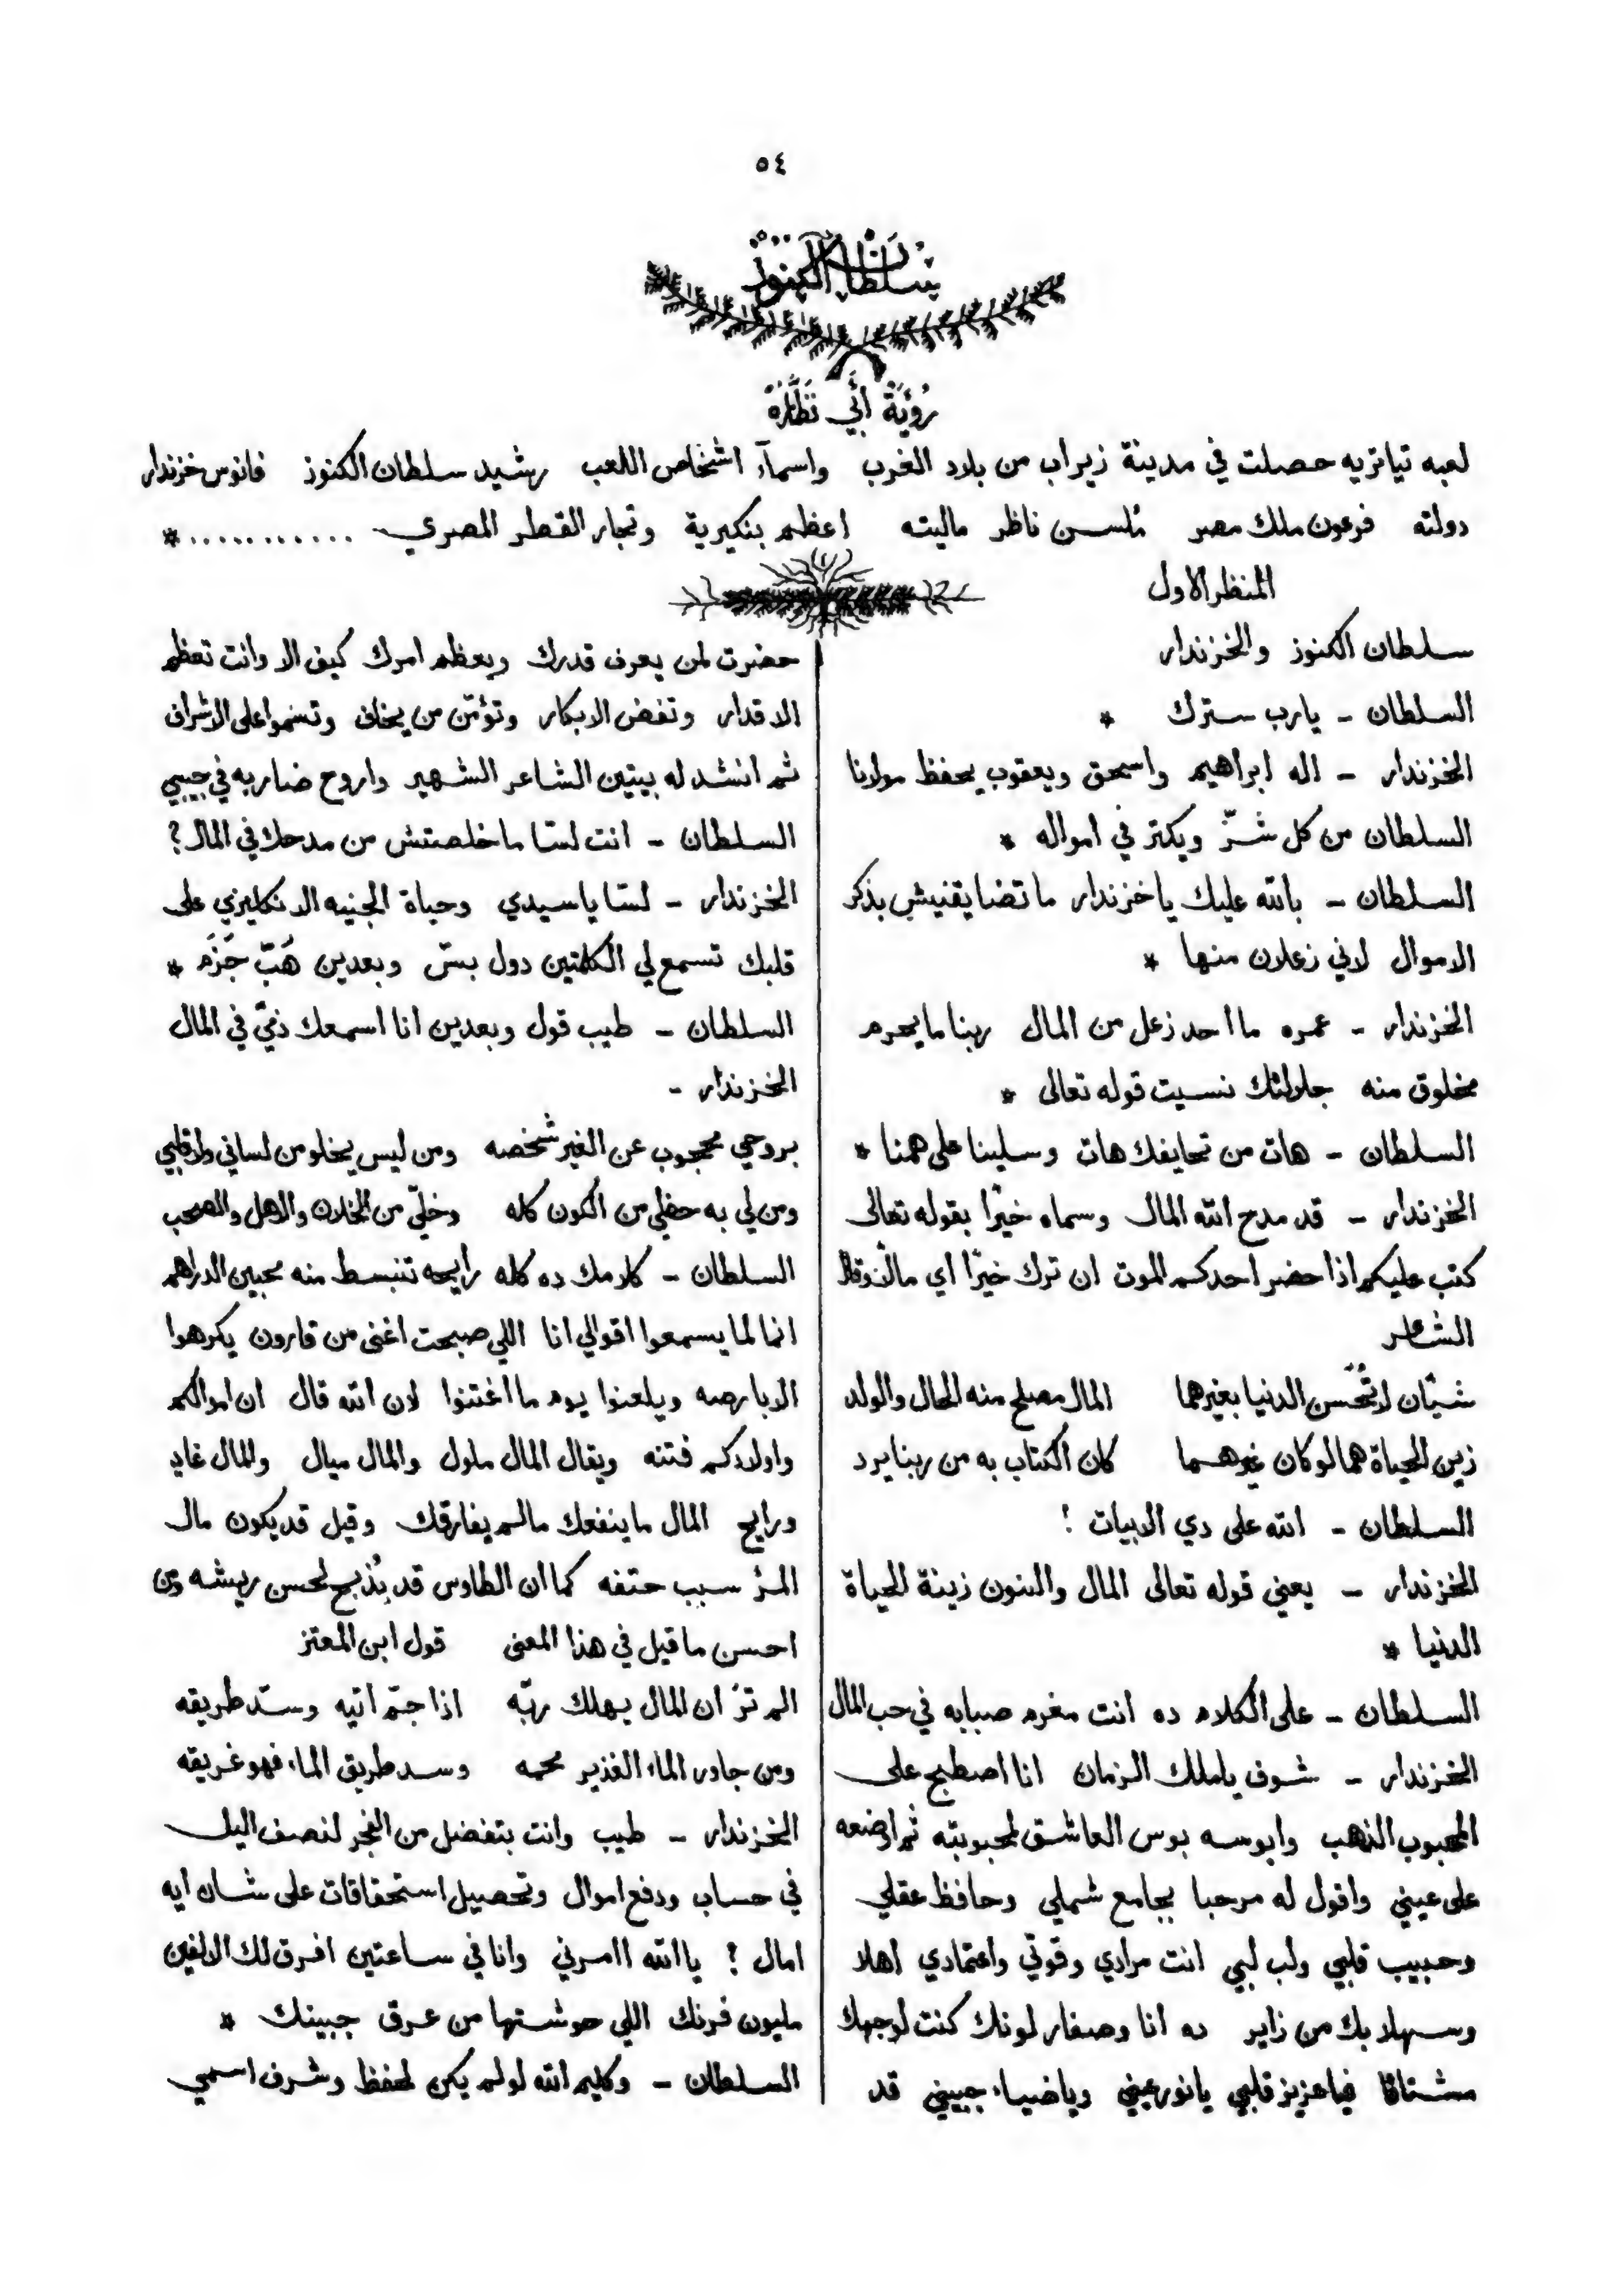 ٥٤
سلطان الكنوز
رؤية أبي نظارة
لعبه تياتريه حصلت في مدينة زيراب من بلاد الغرب واسمآء اشخاص اللعب رشيد سلطان الكنوز فانوس خزندار
دولته فرعون ملك مصر نلسن ناظر ماليته اعظم بنكيرية وتجار القطر المصري ............*
المنظر الاول
سلطان الكنوز والخزندار
السلطان - يارب سترك *
الخزندار - اله ابراهيم واسحق ويعقوب يحفظ مولانا
السلطان من كل شرّ ويكتر في امواله *
السلطان - بالله عليك ياخزندار ما تضايقنيش بذكر
الاموال لاني زعلان منها *
الخزندار - عمره ما احد زعل من المال ربنا ما يحرم
مخلوق منه جلالتك نسيت قوله تعالى *
السلطان - هات من تحايفك هات وسلينا على همنا *
الخزندار - قد مدح الله المال وسماه خيرًا بقوله تعالى
كتب عليكم اذا حضر احدكم الموت ان ترك خيرًا اي مالًا وقال
الشاعر
شيّان لا تحسن الدنيا بغيرهما المال مصلح منه الحال والولد
زين الحياة هما لو كان غيرهما كان الكتاب به من ربنا يرد
السلطان - الله على دي الابيات !
الخزندار - يعني قوله تعالى المال والبنون زينة الحياة
الدنيا *
السلطان - على الكلام ده انت مغرم صبابه في حب المال
الخزندار - شوف ياملك الزمان انا اصطبح على
المحبوب الذهب وابوسه بوس العاشق لمحبوبته ثم اوضعه
على عيني واقول له مرحبا بجامع شملي وحافظ عقلي
وحبيب قلبي ولب لبي انت مرادي وقوتي واعتمادي اهلا
وسهلا بك من زاير ده انا وصفار لونك كنت لوجهك
مشتاقا فياعزيز قلبي يانور عيني وياضياء جبيني قد
حضرت لمن يعرف قدرك ويعظم امرك كيف الا وانت تعظم
الاقدار وتفض الابكار وتؤمّن من يخاف وتسموا على الاشراف
ثم انشد له بيتين الشاعر الشهير واروح ضاربه في جيبي
السلطان - انت لسّا ما خلصتش من مدحك في المال؟
الخزندار - لسّا ياسيدي وحياة الجنيه الانكليزي على
قلبك تسمع لي الكلمتين دول بسّ وبعدين هَبّ جَزَم *
السلطان - طيب قول وبعدين انا اسمعك ذيّ في المال
الخزندار -
بروحي محجوب عن الغير شخصه ومن ليس يخلو من لساني ولا قلبي
ومن لي به حظي من الكون كله وخلّي من الخلان والاهل والصحب
السلطان - كلامك ده كله رايحه تنبسط منه محبين الدراهم
انما لما يسمعوا اقوالي انا اللي صبحت اغنى من قارون يكرهوا
الابارصه ويلعنوا يوم ما اغتنوا لان الله قال ان اموالكم
واولادكم فتنه ويقال المال ملول والمال ميال والمال غاد
ورايح المال ما ينفعك مالم يفارقك وقيل قد يكون مال
المرء سبب حتفه كما ان الطاوس قد يُذبح لحسن ريشه ومن
احسن ما قيل في هذا المعنى قول ابن المعتز
الم ترَ ان المال يهلك ربّه اذا جمّ اتيه وسدّ طريقه
ومن جاور الماء الغذير مجمه وسد طريق الماء فهو غريقه
الخزندار - طيب وانت بتفضل من الفجر لنصف اليل
في حساب ودفع اموال وتحصيل استحقاقات على شان ايه
امال ؟ يا الله اامرني وانا في ساعتين افرق لك الالفين
مليون فرنك اللي حوشتها من عرق جبينك *
السلطان - وكليم الله لولم يكن لحفظ وشرف اسمي